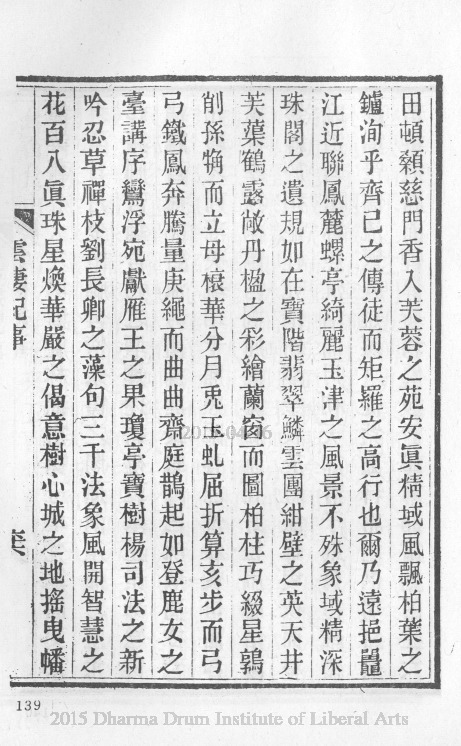 田頓顙慈門香入芙蓉之苑安眞精域風飄柏葉之
鑪洵乎齊己之傳徒而矩羅之高行也爾乃遠挹鼉
江近聯鳳麓螺亭綺麗玉津之風景不殊象域精深
珠閣之遺規如在寶階翡翠鱗雲團紺壁之英天井
芙蕖鶴露敞丹楹之彩繪蘭窗而圖柏柱巧綴星鶉
削孫桷而立母榱華分月兎玉虬屈折算亥步而弓
弓鐵鳳奔騰量庚繩而曲曲齋庭鵲起如登鹿女之
臺講序鸞浮宛獻雁王之果瓊亭寶樹楊司法之新
吟忍草禪枝劉長卿之藻句三千法象風開智慧之
花百八眞珠星煥華嚴之偈意樹心城之地搖曳幡
雲棲紀事
139
2015 Dharma Drum Institute of Liberal Arts